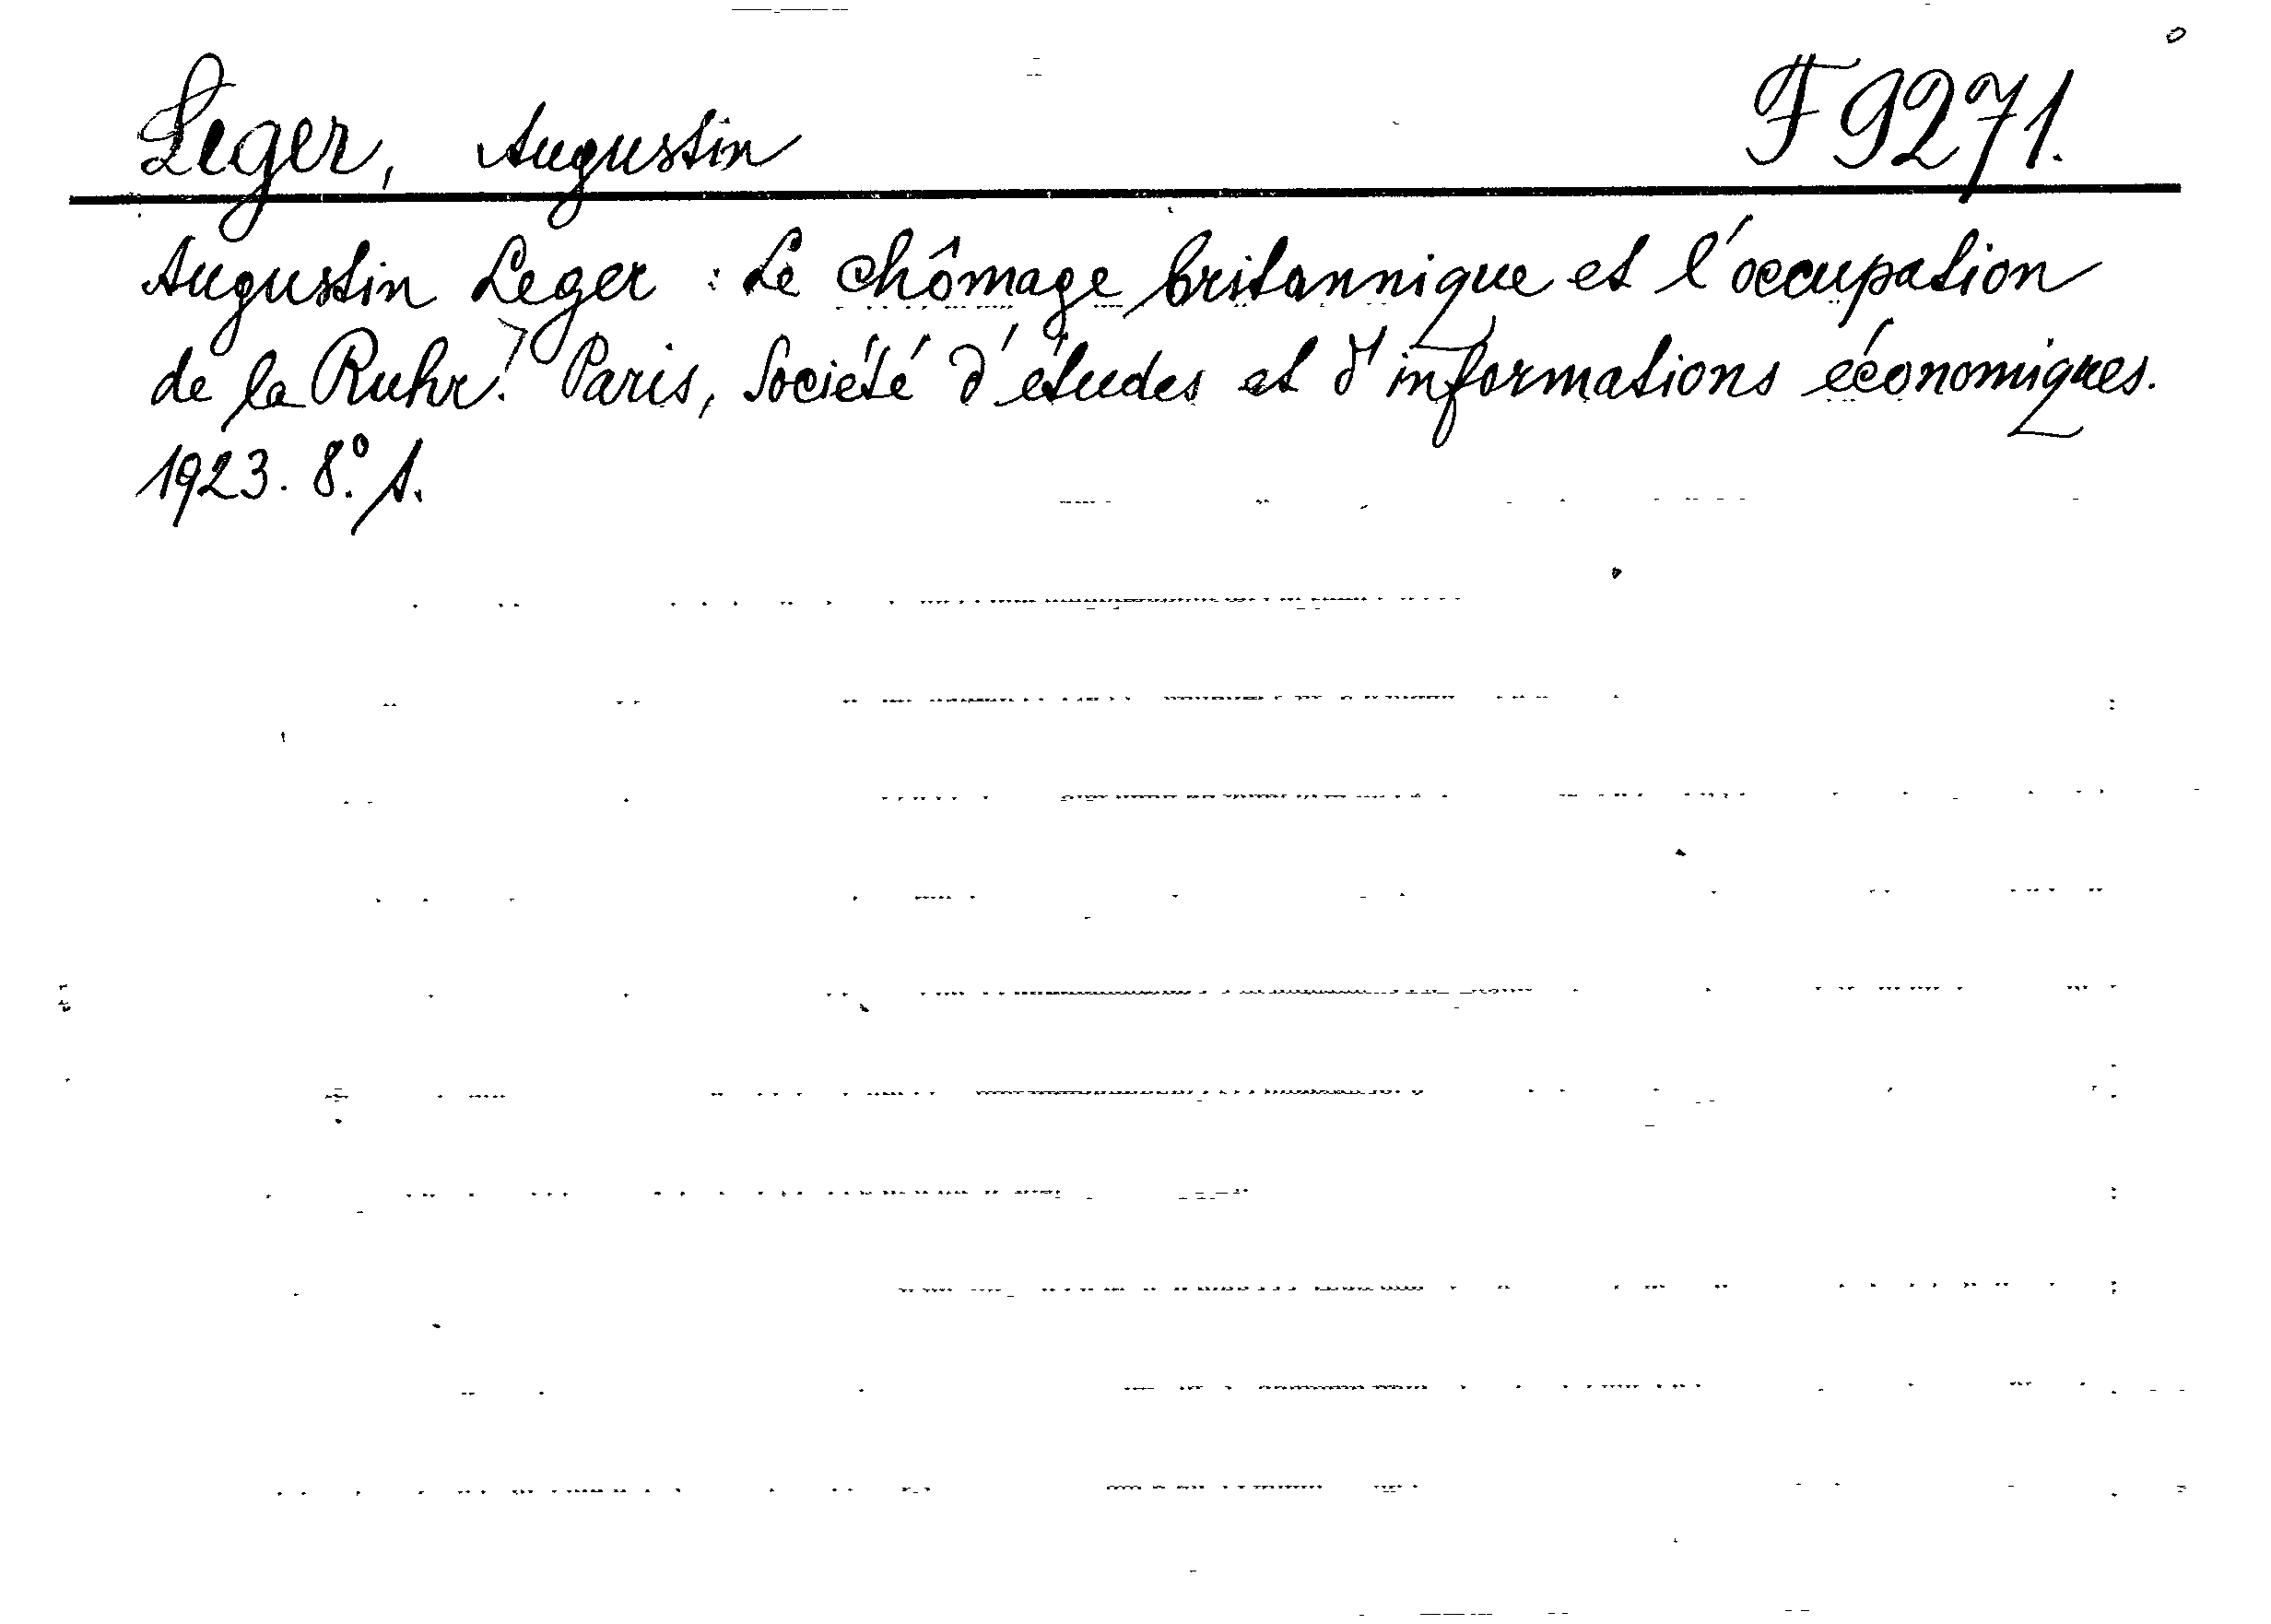 Leger, Augustin F 9271.
Augustin Leger : Le chômage britannique et l'occupation
de la Ruhr. Paris, Société d'études et d'informations économiques.
1923. 8°. s.